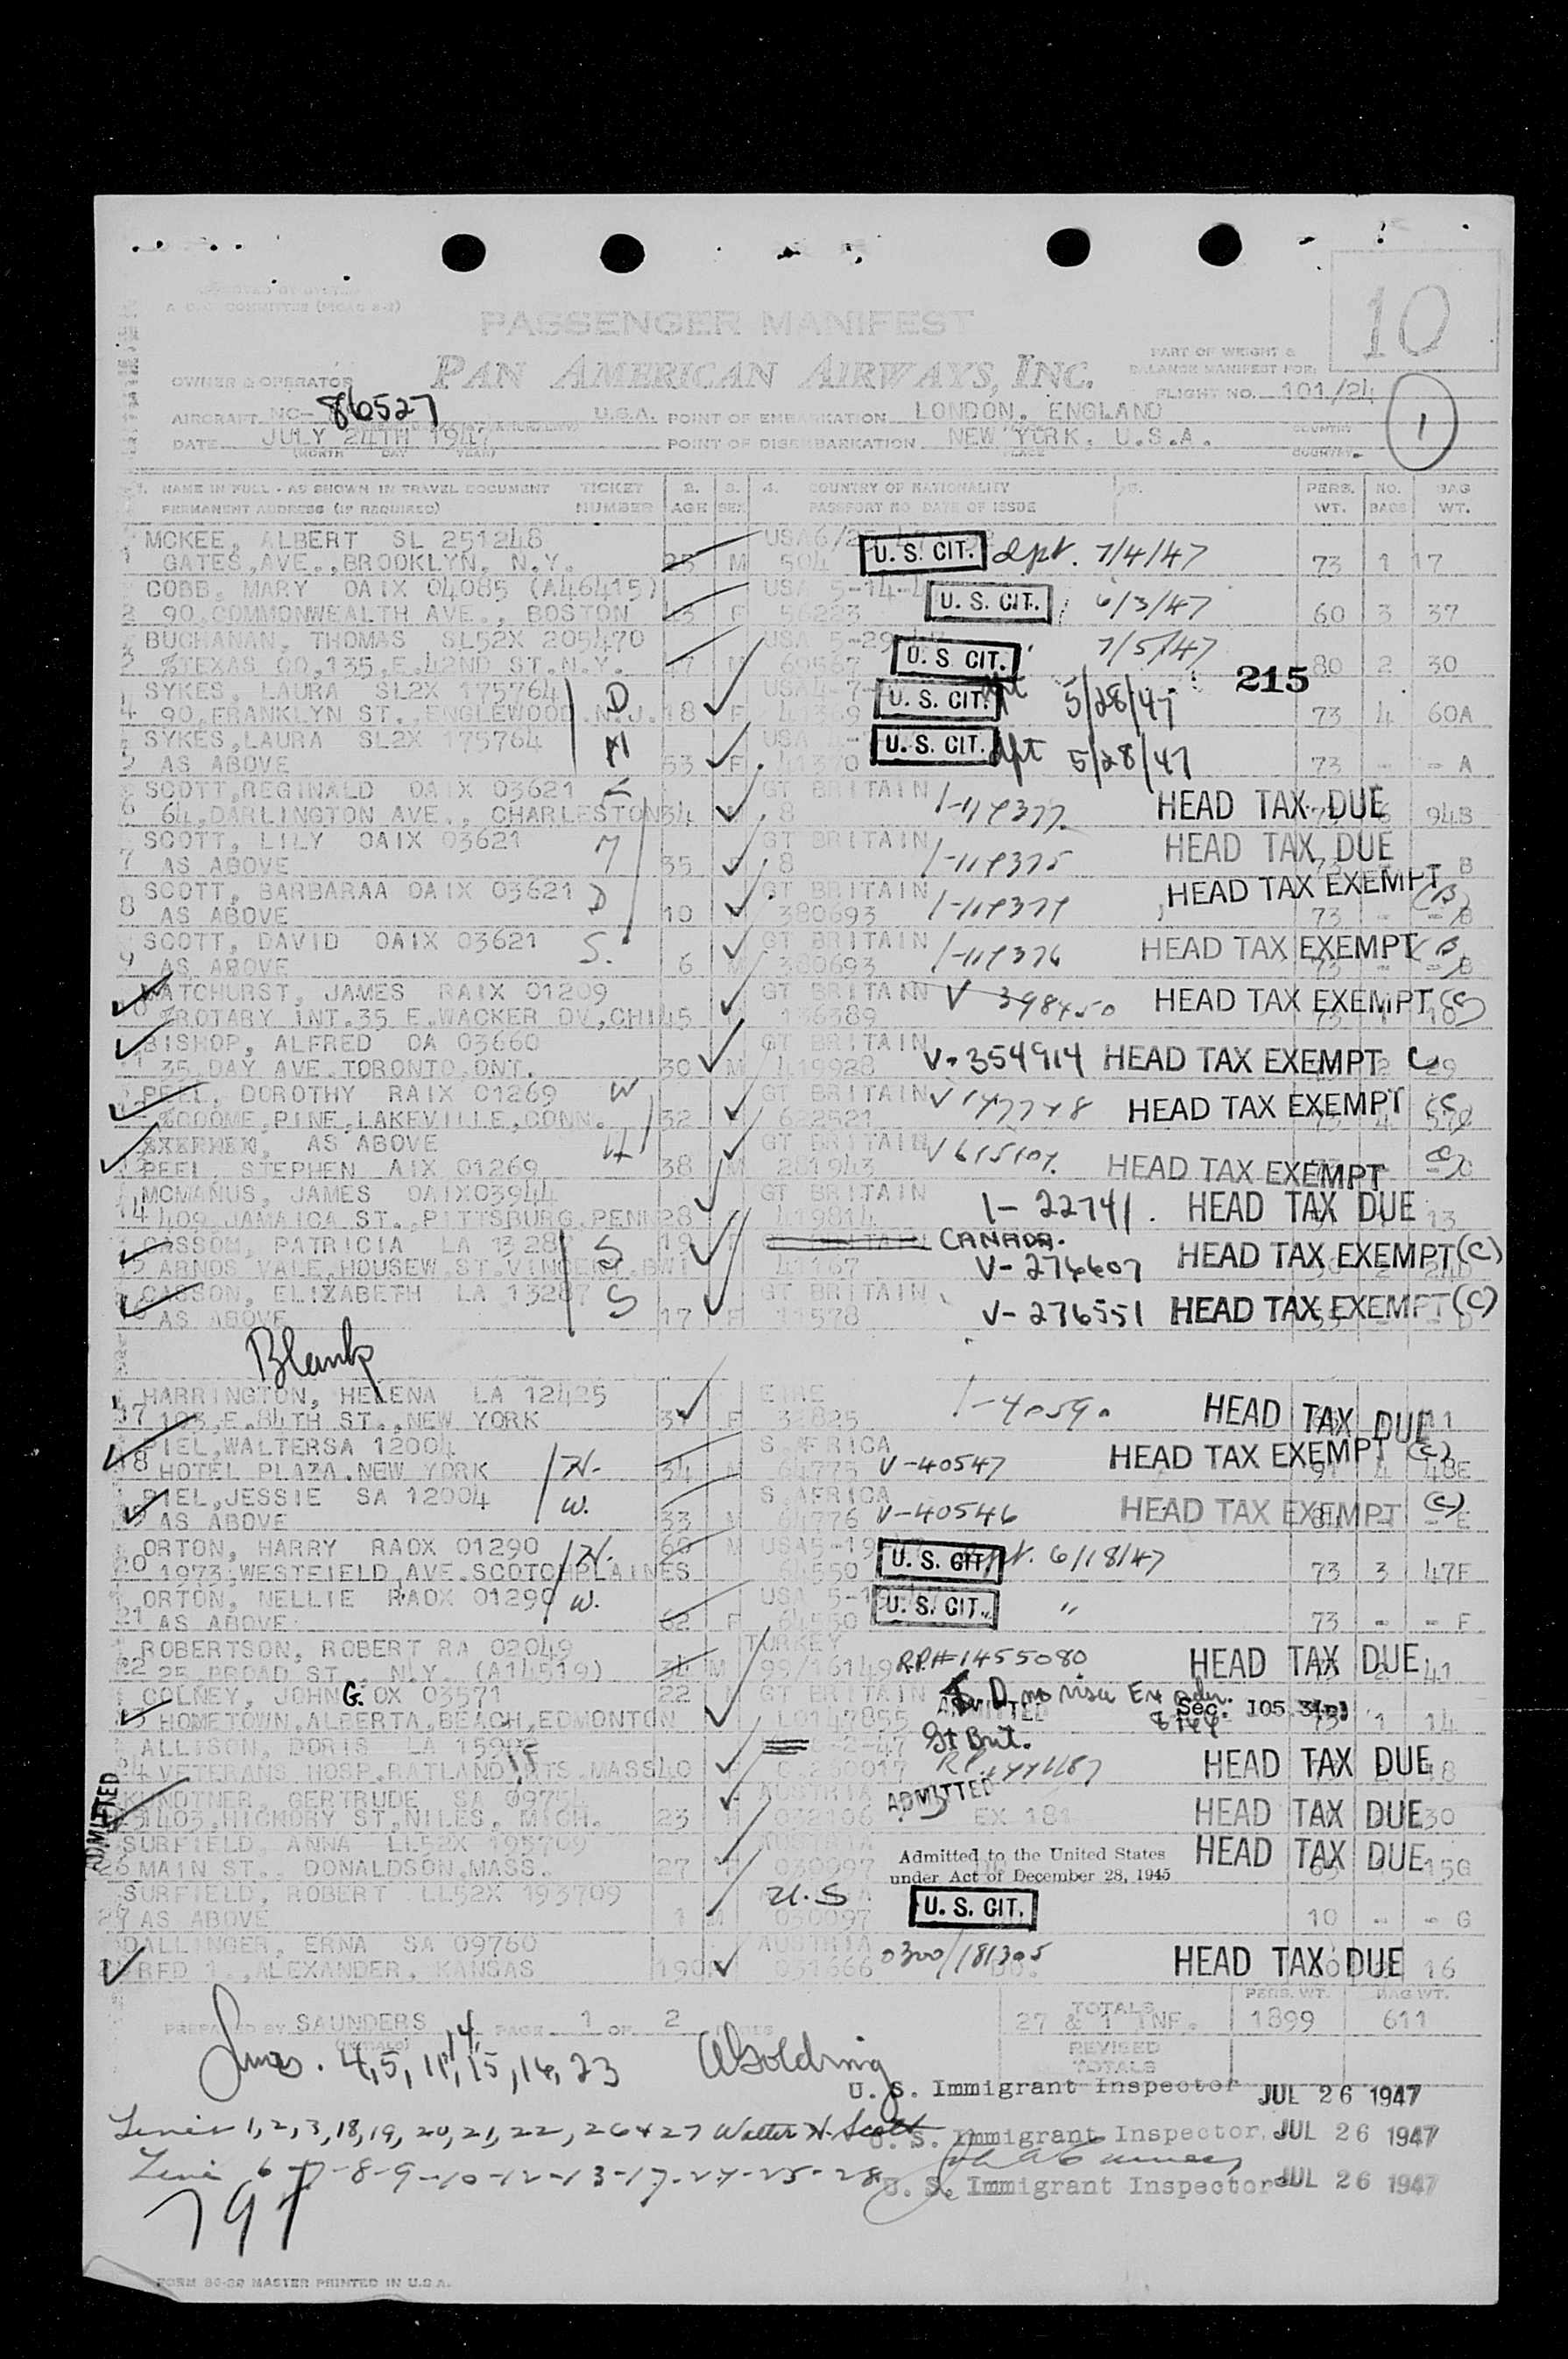 10
PASSENGER MANIFEST
PAN AMERICAN AIRWAYS, INC.
PART OF WEIGHT &
BALANCE MANIFEST FOR:
OWNER & OPERATOR
FLIGHT NO. 101/24
AIRCRAFT NC- 86527 U.S.A. POINT OF EMBARKATION LONDON, ENGLAND
1
DATE JULY 24TH 1947 POINT OF DISEMBARKATION NEW YORK, U.S.A.
(MONTH DAY YEAR)
1. NAME IN FULL - AS SHOWN IN TRAVEL DOCUMENT TICKET 2. 3. 4. COUNTRY OF NATIONALITY 5. PERS. NO. BAG
PERMANENT ADDRESS (IF REQUIRED) NUMBER AGE SEX PASSPORT NO DATE OF ISSUE WT. BAGS WT.
MCKEE, ALBERT SL 251248 USA
1 GATES,AVE.,BROOKLYN, N.Y. M 504 U. S. CIT. dpt. 7/4/47 73 1 17
COBB, MARY OAIX 04085 (A46415) USA 5-14-
2 90,COMMONWEALTH AVE., BOSTON F 56223 U. S. CIT. 6/3/47 60 3 37
BUCHANAN, THOMAS SL52X 205470 USA 5-29
%TEXAS CO,135,E.42ND ST.N.Y. M 69567 U. S. CIT. 7/5/47 80 2 30
215
SYKES, LAURA SL2X 175764 D USA
4 90,FRANKLYN ST.,ENGLEWOOD.N.J. 18 F U. S. CIT. 5/28/47 73 4 60A
SYKES,LAURA SL2X 175764 M USA
5 AS ABOVE 53 F 41370 U. S. CIT. dpt 5/28/47 73 - - A
SCOTT,REGINALD OAIX 03621 GT BRITAIN
6 64,DARLINGTON AVE., CHARLESTON 34 8 HEAD TAX DUE 94B
SCOTT, LILY OAIX 03621 M GT BRITAIN
7 AS ABOVE 35 8 HEAD TAX DUE B
SCOTT, BARBARAA OAIX 03621 D GT BRITAIN
8 AS ABOVE 10 380693 HEAD TAX EXEMPT (B) 73 - - B
SCOTT, DAVID OAIX 03621 S. GT BRITAIN
9 AS ABOVE 6 380693 HEAD TAX EXEMPT B
WATCHURST, JAMES RAIX 01209 GT BRITAIN
%ROTARY INT.35 E.WACKER DV,CHI 45 136389 V 398450 HEAD TAX EXEMPT (C)
BISHOP, ALFRED OA 03660 GT BRITAIN
35,DAY AVE.TORONTO,ONT. 30 M 419928 V-354914 HEAD TAX EXEMPT C 2 29
PEEL, DOROTHY RAIX 01269 W GT BRITAIN
%DOOME,PINE,LAKEVILLE,CONN. 32 622521 HEAD TAX EXEMPT (C)
AS ABOVE H GT BRITAIN
PEEL, STEPHEN AIX 01269 38 M 281943 HEAD TAX EXEMPT (C)
MCMANUS, JAMES OAIX03944 GT BRITAIN
14 409 JAMAICA ST.,PITTSBURG,PENN 28 419814 1- 22741. HEAD TAX DUE 13
CASSON, PATRICIA LA 13287 S 19 CANADA.
ARNOS VALE,HOUSEW.ST.VINCENT.BWI V-276607 HEAD TAX EXEMPT (C)
CASSON, ELIZABETH LA 13287 S GT BRITAIN
AS ABOVE 17 F 11578 V-276551 HEAD TAX EXEMPT (C)
Blank
HARRINGTON, HELENA LA 12425 EIRE
17 103,E.84TH ST.,NEW YORK F 32825 HEAD TAX DUE
PIEL,WALTERSA 12004 S.AFRICA
18 HOTEL PLAZA.NEW YORK H. 34 M 64775 V-40547 HEAD TAX EXEMPT (C) 48E
PIEL,JESSIE SA 12004 W. S.AFRICA
AS ABOVE 33 M 64776 V-40546 HEAD TAX EXEMPT (C) - E
ORTON, HARRY RAOX 01290 H. 60 M USA5-19
20 1973,WESTFIELD,AVE.SCOTCHPLAINES 64550 U. S. CIT. 6/18/47 73 3 47F
ORTON, NELLIE RAOX 01290 W. USA 5-1
21 AS ABOVE 62 F 64550 U. S. CIT. " 73 - - F
ROBERTSON, ROBERT RA 02049 TURKEY
22 25 BROAD ST., N.Y. (A14519) 34 M 99/16149 R.P.#1455080 HEAD TAX DUE 41
COLNEY, JOHN G. OX 03571 22 GT BRITAIN no visa Ex order.
HOMETOWN,ALBERTA,BEACH,EDMONTON L0147855 ADMITTED Sec. 105.3(a) 1 14
ALLISON, DORIS LA Gt Brit.
24 VETERANS HOSP.RATLAND,HTS.MASS 40 HEAD TAX DUE
ADMITTED
KUNDTNER, GERTRUDE SA 09754 AUSTRIA ADMITTED
1403,HICKORY ST,NILES, MICH. 23 EX 181 HEAD TAX DUE 30
SURFIELD, ANNA LL52X 193709
26 MAIN ST., DONALDSON,MASS. 27 030097 Admitted to the United States
under Act of December 28, 1945 HEAD TAX DUE 15G
SURFIELD, ROBERT LL52X 193709 U.S
27 AS ABOVE 1 M 030097 U. S. CIT. 10 - - G
DALLINGER, ERNA SA 09760 AUSTRIA 0300/181305
RFD 1.,ALEXANDER, KANSAS 19 031666 HEAD TAX DUE 16
PREPARED BY SAUNDERS PAGE 1 OF 2 PAGES TOTALS PERS. WT. BAG WT.
27 & 1 INF. 1899 611
REVISED
TOTALS
Lines. 4,5,11,14,15,16,23 A Golding
U. S. Immigrant Inspector JUL 26 1947
Lines 1,2,3,18,19,20,21,22,26+27 Walter H. Scott
U. S. Immigrant Inspector. JUL 26 1947
Line 6-7-8-9-10-12-13-17-24-25-28
U. S. Immigrant Inspector JUL 26 1947
791
FORM 86-32 MASTER PRINTED IN U.S.A.